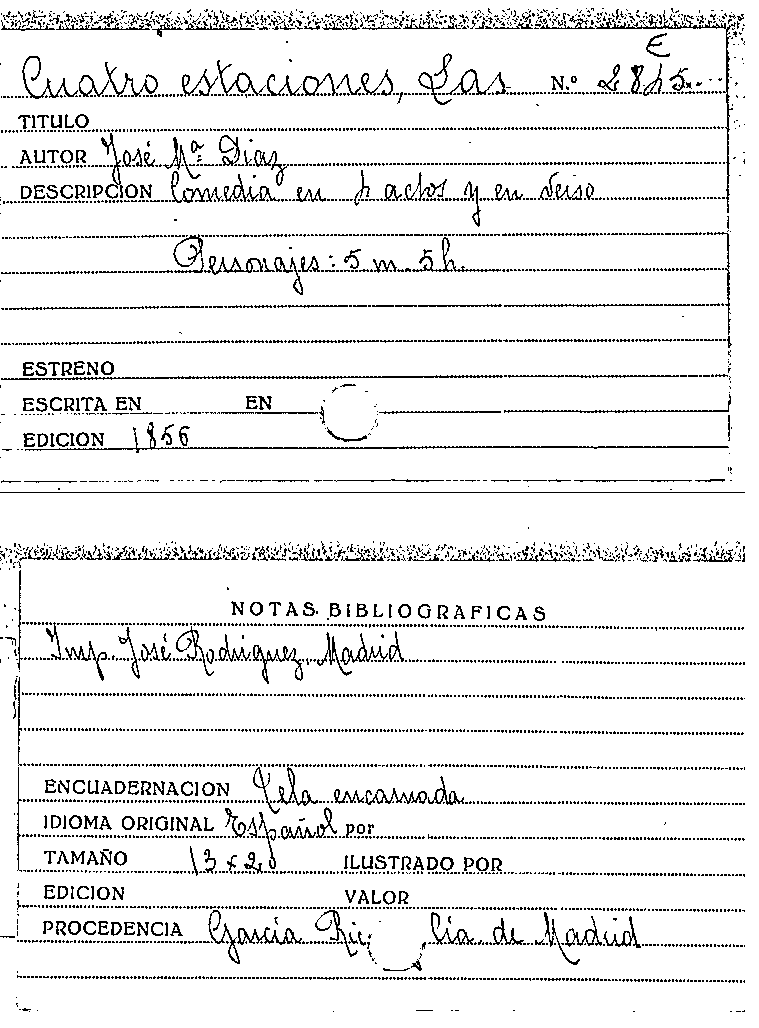 E
Cuatro estaciones, Las N.º 2845
TITULO
AUTOR José Mª Diaz
DESCRIPCION Comedia en 4 actos y en verso
Personajes: 5 m. 5 h.
ESTRENO
ESCRITA EN EN
EDICION 1856
NOTAS BIBLIOGRAFICAS
Imp. José Rodriguez. Madrid
ENCUADERNACION Tela encarnada
IDIOMA ORIGINAL Español por
TAMAÑO 13 x 20 ILUSTRADO POR
EDICION VALOR
PROCEDENCIA García Ric Cía. de Madrid